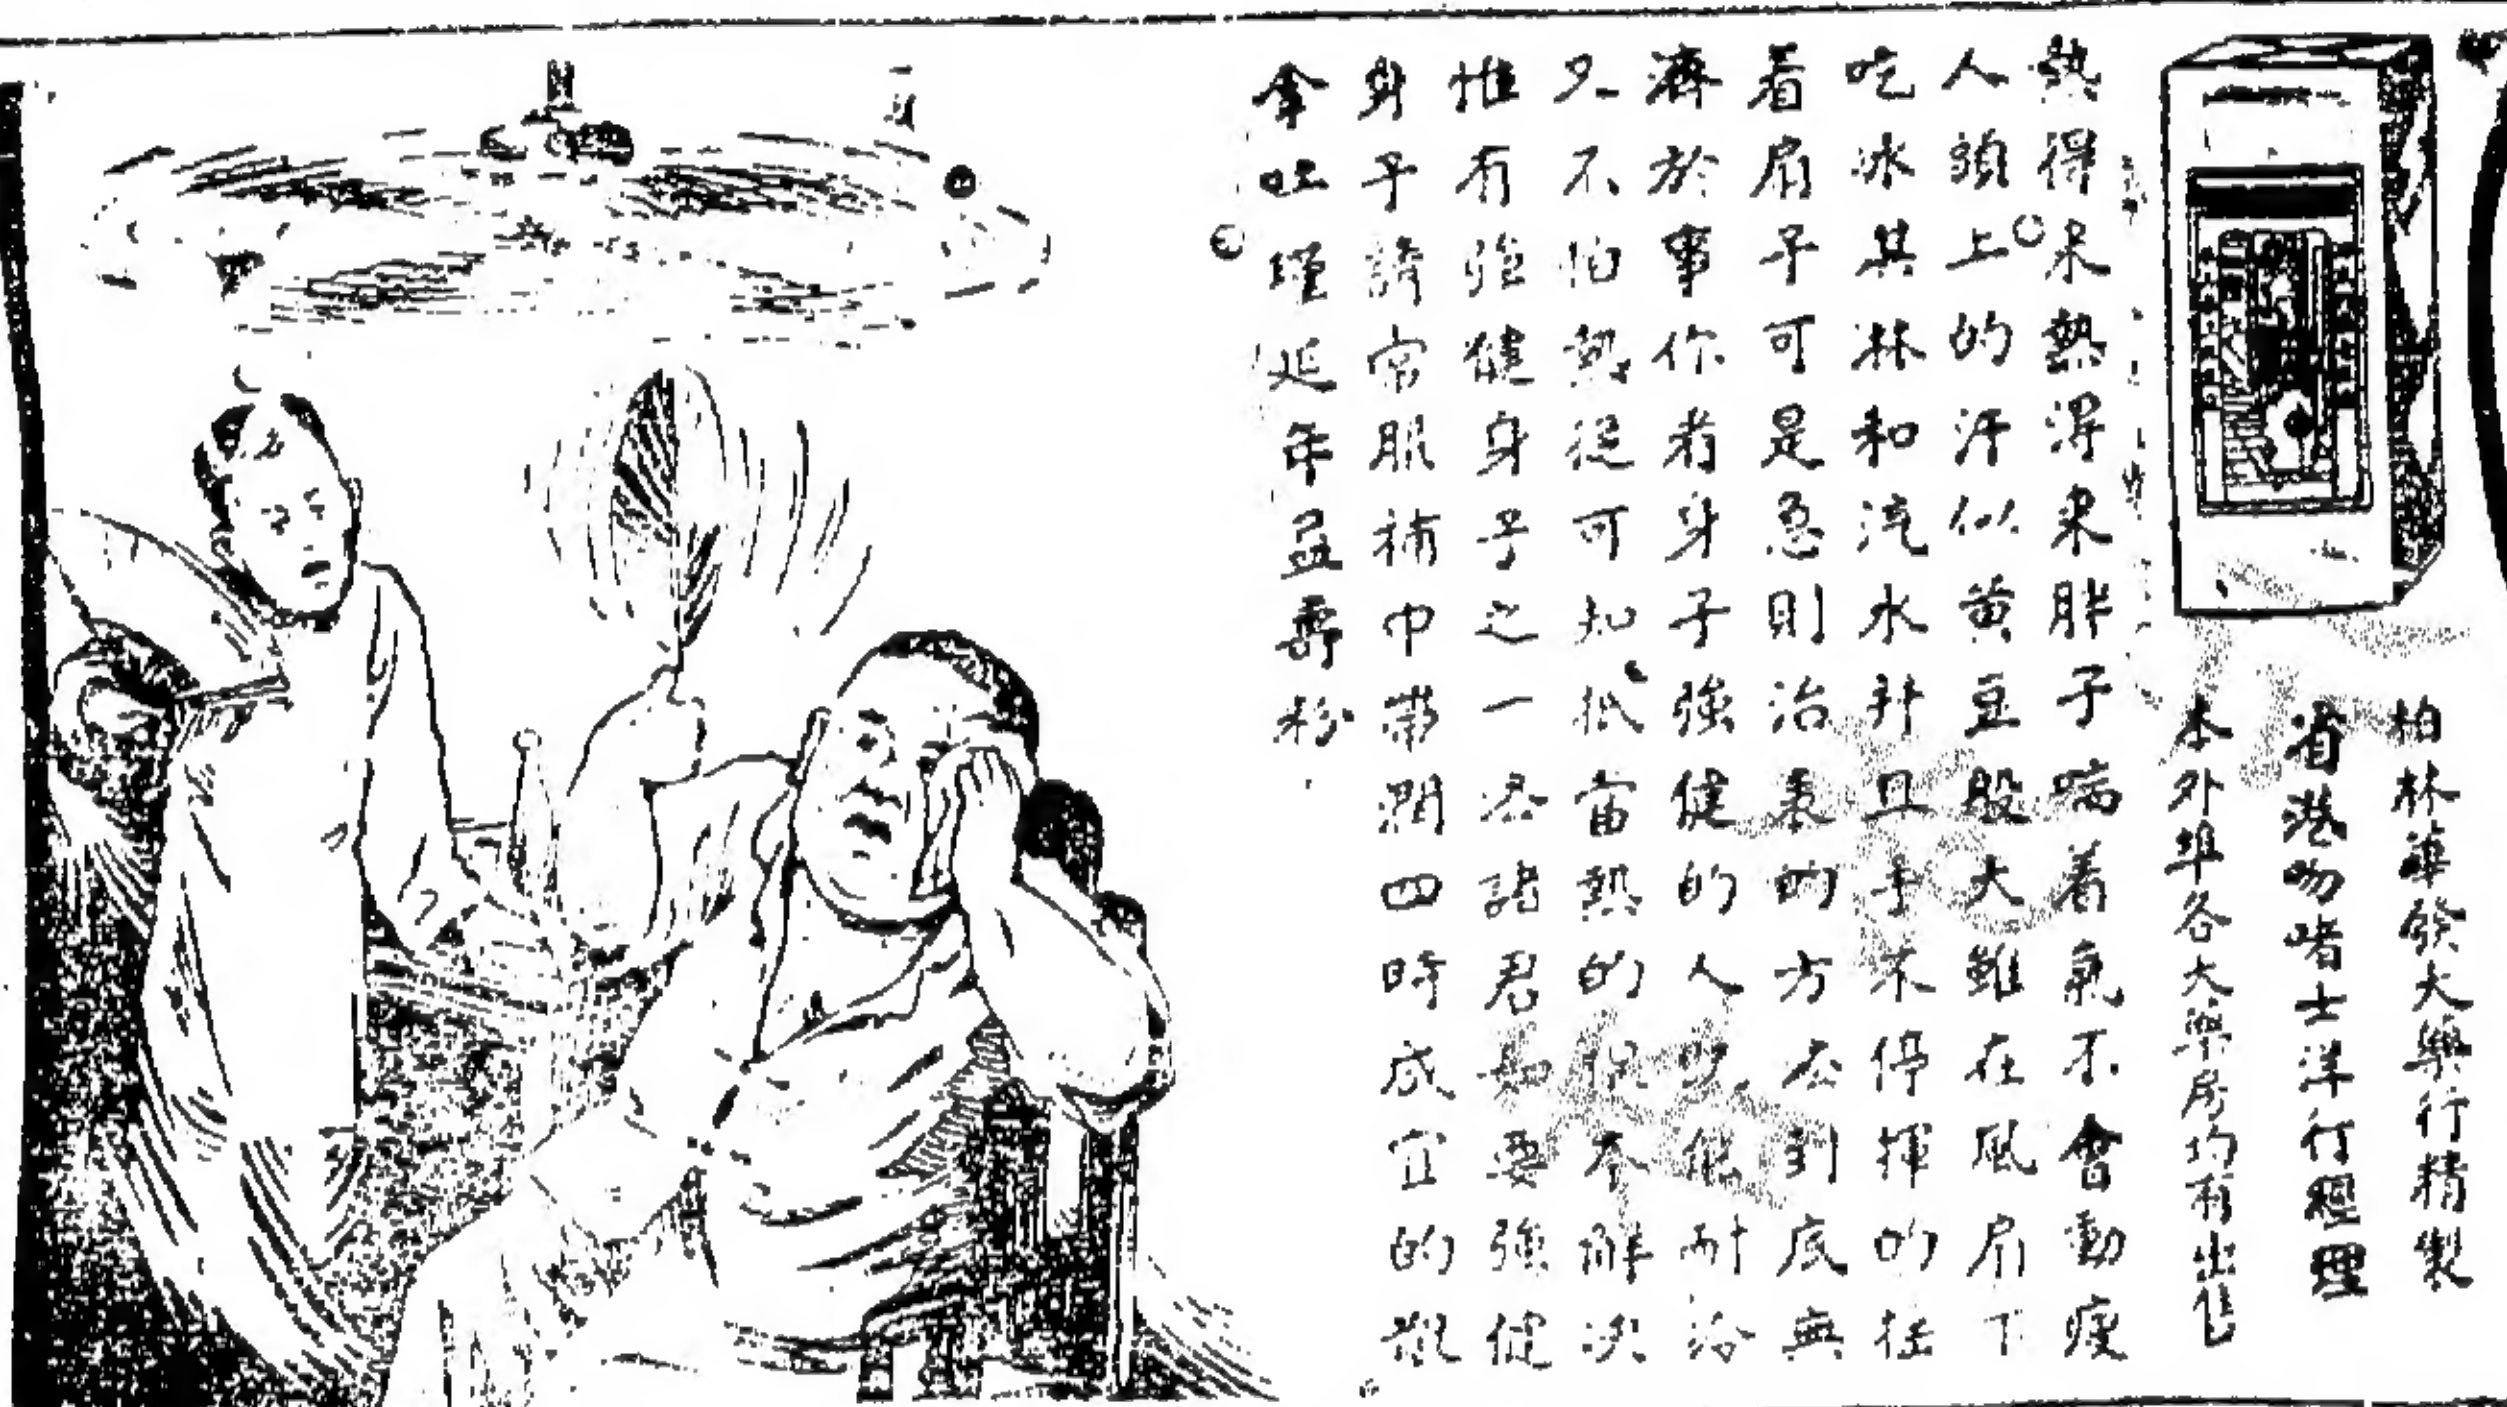 柏林華發大藥行精製
省港吻啫士洋行經理
本外埠各大藥房均有出售
熱得來熱得來胖子喘着氣不會動瘦
人頭上的汗似黄豆般大雖在風扇下
吃冰其林和汽水并且手不停揮的
着扇子可是急則治表的方法到底無
濟於事你看身子強健的人能耐冷
又不怕熱從可知抵當熱的不解決
惟有強健身子之一法諸君如要強健
身子請常服補中帶潤四時咸宜的散
拿吐瑾延年益壽粉